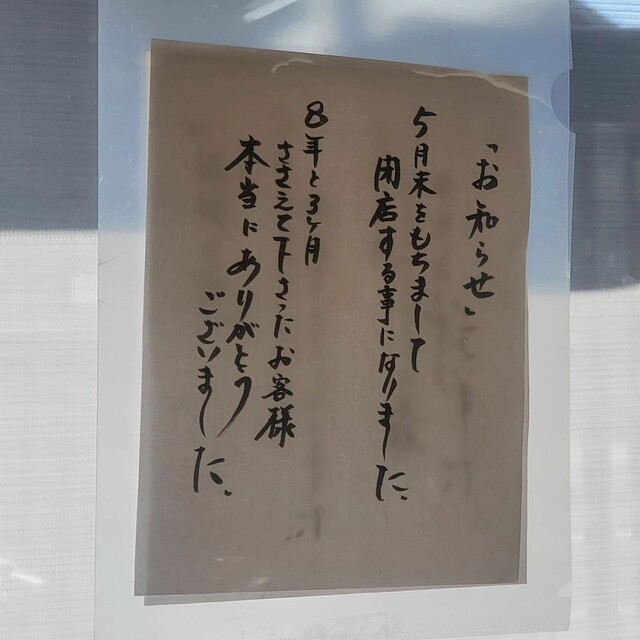 「お知らせ」
5月末をもちまして
閉店する事になりました。
8年と3ヶ月
ささえて下さったお客様
本当にありがとう
ございました。